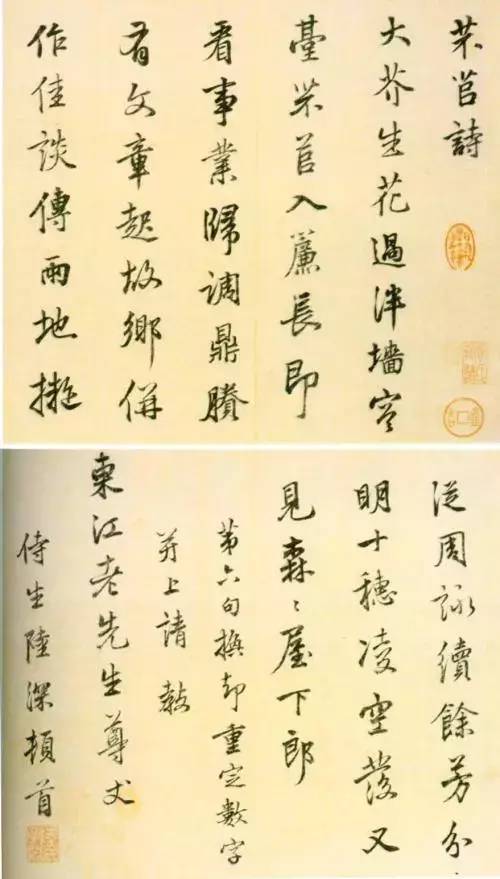 芣苢詩
大芥生花過泮墻
臺芣苢入簾長即
看事業歸調鼎賸
有文章起故鄉併
作佳談傳兩地擬
從周詠續餘芳分
明十穗凌空發又
見森〻屋下郎
第六句却重定數字
并上請教
東江老先生尊丈
侍生陸深頓首